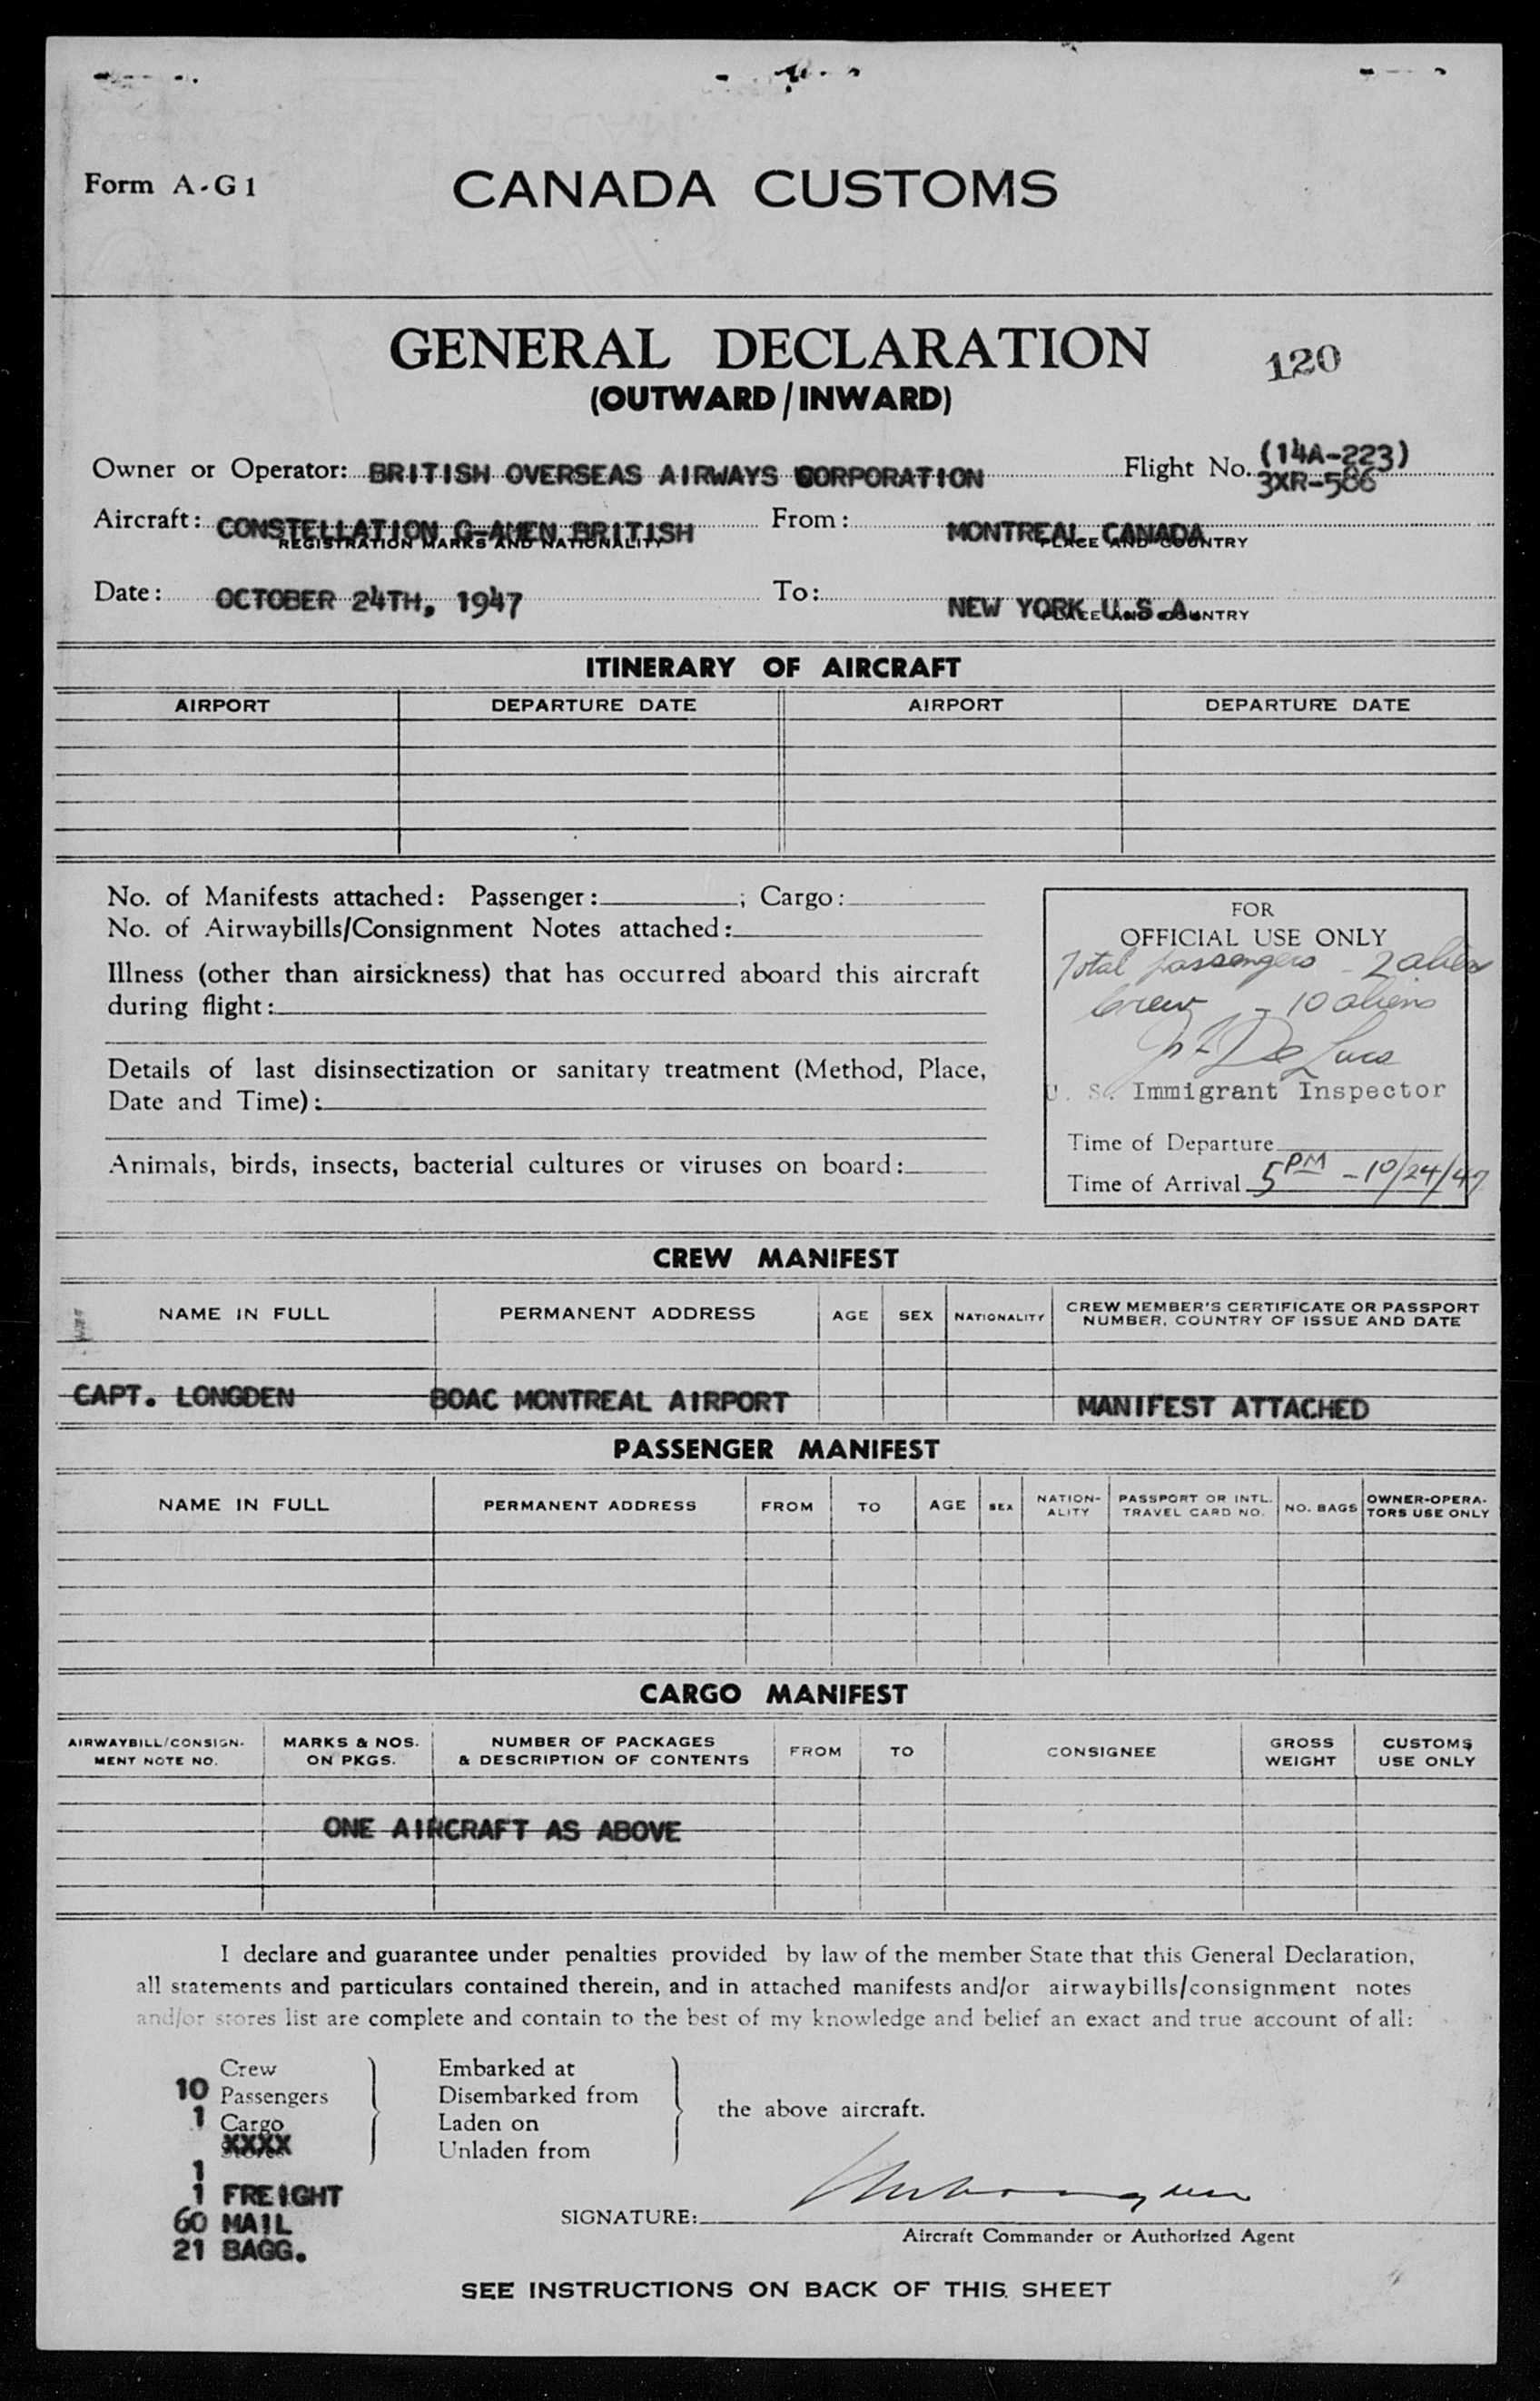 Form A-G1
CANADA CUSTOMS
GENERAL DECLARATION
(OUTWARD/INWARD)
120
Owner or Operator: BRITISH OVERSEAS AIRWAYS CORPORATION Flight No. (14A-223)
3XR-586
Aircraft: CONSTELLATION G-AMEN BRITISH From: MONTREAL CANADA
REGISTRATION MARKS AND NATIONALITY PLACE AND COUNTRY
Date: OCTOBER 24TH, 1947 To: NEW YORK U.S.A.
PLACE AND COUNTRY
ITINERARY OF AIRCRAFT
AIRPORT DEPARTURE DATE AIRPORT DEPARTURE DATE
No. of Manifests attached: Passenger: ; Cargo:
No. of Airwaybills/Consignment Notes attached:
Illness (other than airsickness) that has occurred aboard this aircraft
during flight:
Details of last disinsectization or sanitary treatment (Method, Place,
Date and Time):
Animals, birds, insects, bacterial cultures or viruses on board:
FOR
OFFICIAL USE ONLY
Total passengers - 2 alien
Crew - 10 aliens
De Luca
U. S. Immigrant Inspector
Time of Departure
Time of Arrival 5 PM - 10/24/47
CREW MANIFEST
NAME IN FULL PERMANENT ADDRESS AGE SEX NATIONALITY CREW MEMBER'S CERTIFICATE OR PASSPORT
NUMBER, COUNTRY OF ISSUE AND DATE
CAPT. LONGDEN BOAC MONTREAL AIRPORT MANIFEST ATTACHED
PASSENGER MANIFEST
NAME IN FULL PERMANENT ADDRESS FROM TO AGE SEX NATION-
ALITY PASSPORT OR INTL.
TRAVEL CARD NO. NO. BAGS OWNER-OPERA-
TORS USE ONLY
CARGO MANIFEST
AIRWAYBILL/CONSIGN-
MENT NOTE NO. MARKS & NOS.
ON PKGS. NUMBER OF PACKAGES
& DESCRIPTION OF CONTENTS FROM TO CONSIGNEE GROSS
WEIGHT CUSTOMS
USE ONLY
ONE AIRCRAFT AS ABOVE
I declare and guarantee under penalties provided by law of the member State that this General Declaration,
all statements and particulars contained therein, and in attached manifests and/or airwaybills/consignment notes
and/or stores list are complete and contain to the best of my knowledge and belief an exact and true account of all:
Crew Embarked at
10 Passengers Disembarked from
1 Cargo Laden on
XXXX Unladen from
the above aircraft.
1
1 FREIGHT
60 MAIL
21 BAGG.
SIGNATURE:
Aircraft Commander or Authorized Agent
SEE INSTRUCTIONS ON BACK OF THIS SHEET